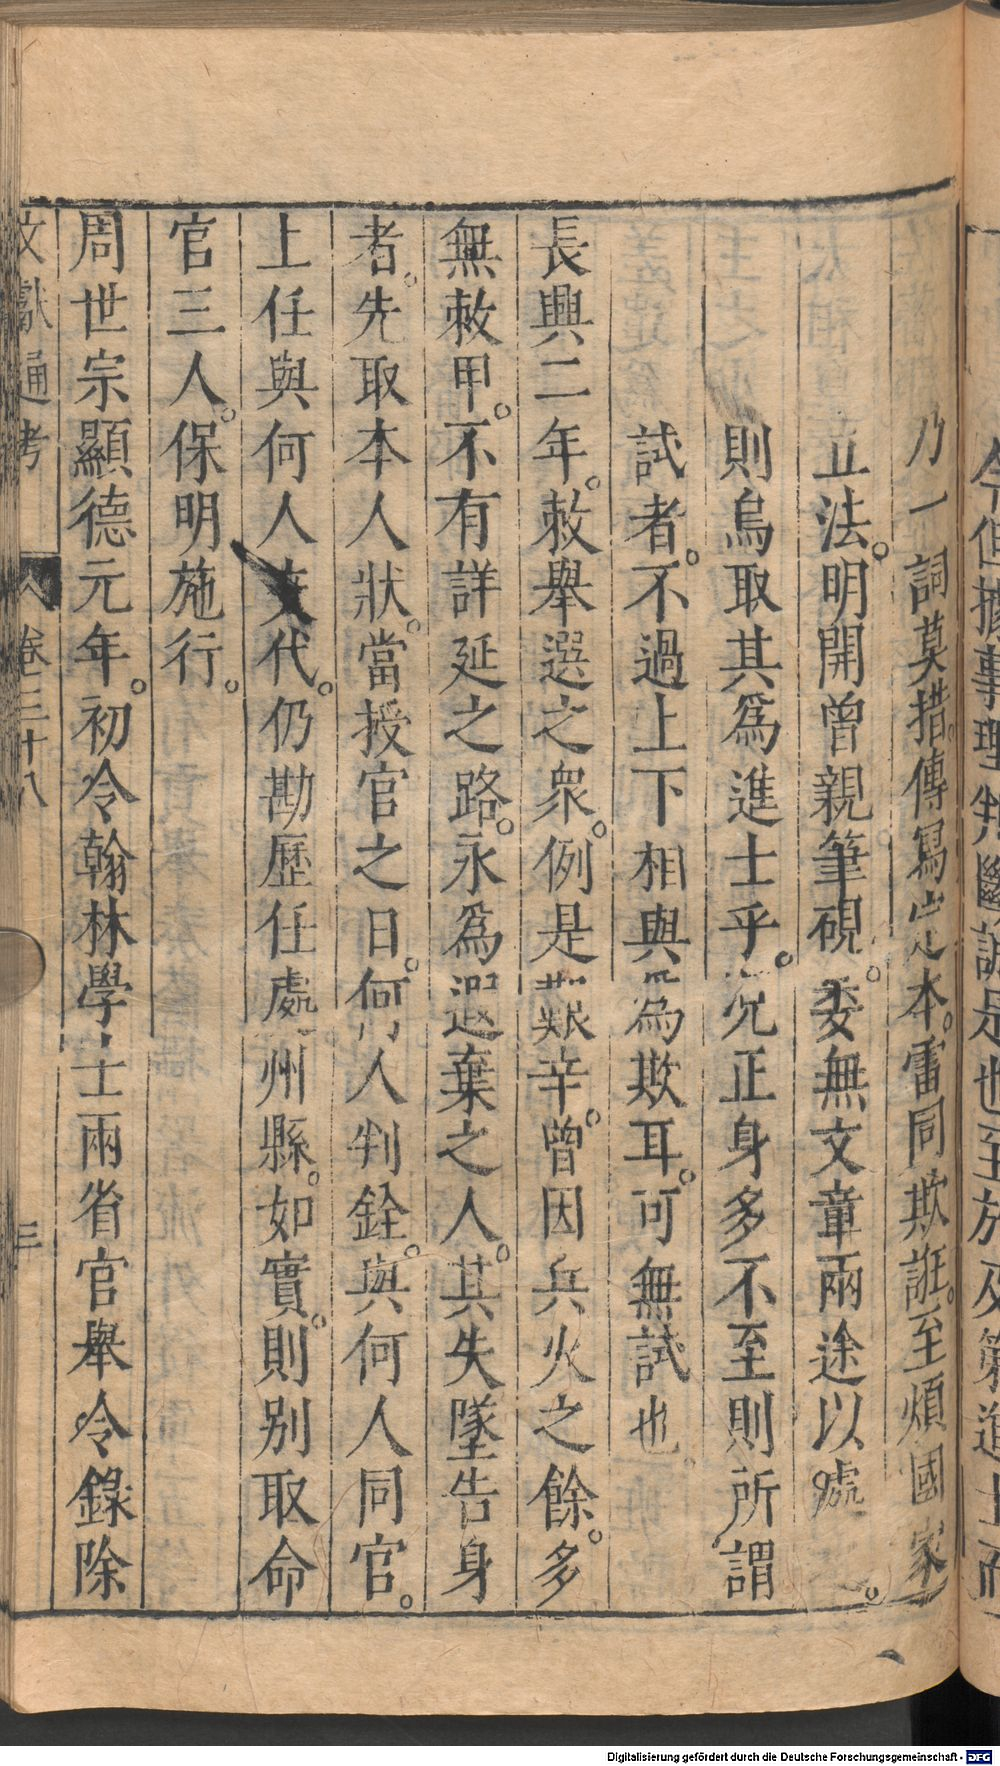 今但據事理判斷誠是也至於及第進士而
乃一詞莫措傳寫定本雷同欺誑至煩國家
立法明開曾親筆硯委無文章兩途以處
則烏取其爲進士乎況正身多不至則所謂
試者不過上下相與爲欺耳可無試也
長興二年敕舉選之衆例是艱辛曾因兵火之餘多
無敕甲不有詳延之路永爲遐棄之人其失墜告身
者先取本人狀當授官之日何人判銓與何人同官
上任與何人交代仍勘歷任處州縣如實則別取命
官三人保明施行
周世宗顯德元年初令翰林學士兩省官舉令錄除
文獻通考 卷三十八 三
Digitalisierung gefördert durch die Deutsche Forschungsgemeinschaft - DFG